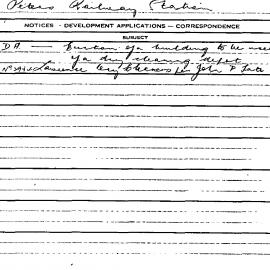 Peters Railway Station
NOTICES - DEVELOPMENT APPLICATIONS - CORRESPONDENCE
SUBJECT
DA — Portion of a building to be used
of a dry cleaning depot
Lawrence Dry Cleaners for John P